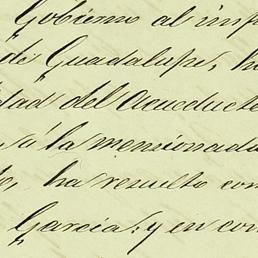 Gobierno al
de Guadalupe, h
dad del Acueducto
á la mencionada
ha resuelto con
Garcia; y en con